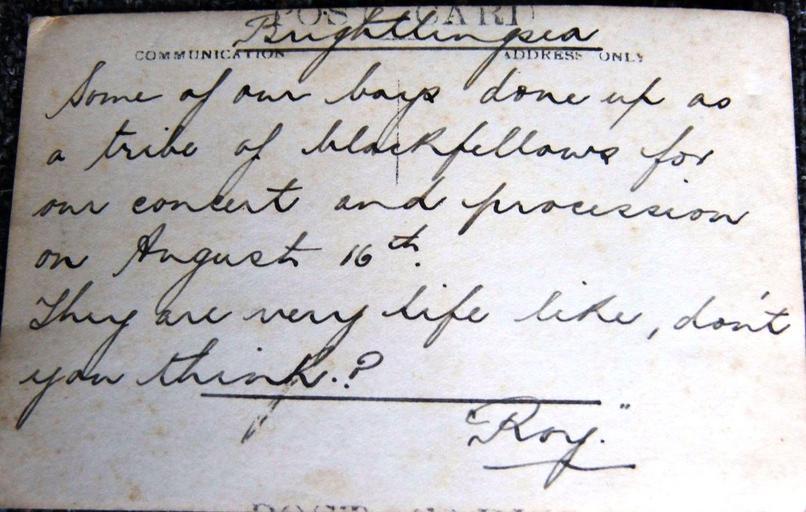 POST CARD
Brightlingsea
COMMUNICATION ADDRESS ONLY
Some of our boys done up as
a tribe of blackfellows for
our concert and procession
on August 16th.
They are very life like, don't
you think.?
"Roy."
POST CARD